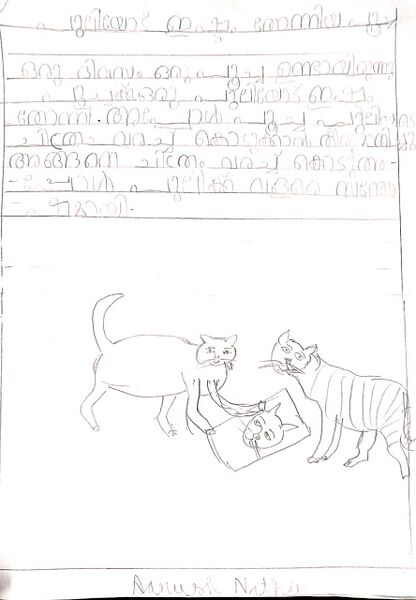 പുലിയോട് ഇഷ്ടം തോന്നിയ പൂച്ച
ഒരു ദിവസം ഒരു പൂച്ച ഉണ്ടായിരുന്നു
പൂച്ചക്ക് ഒരു പുലിയോട് ഇഷ്ടം
തോന്നി. അപ്പോൾ പൂച്ച പുലിയുടെ
ചിത്രം വരച്ച് കൊടുക്കാൻ തീരുമാനിച്ചു
അങ്ങനെ ചിത്രം വരച്ച് കൊടുത്ത-
-പ്പോൾ പുലിക്ക് വളരെ സന്തോ
-ഷമായി.